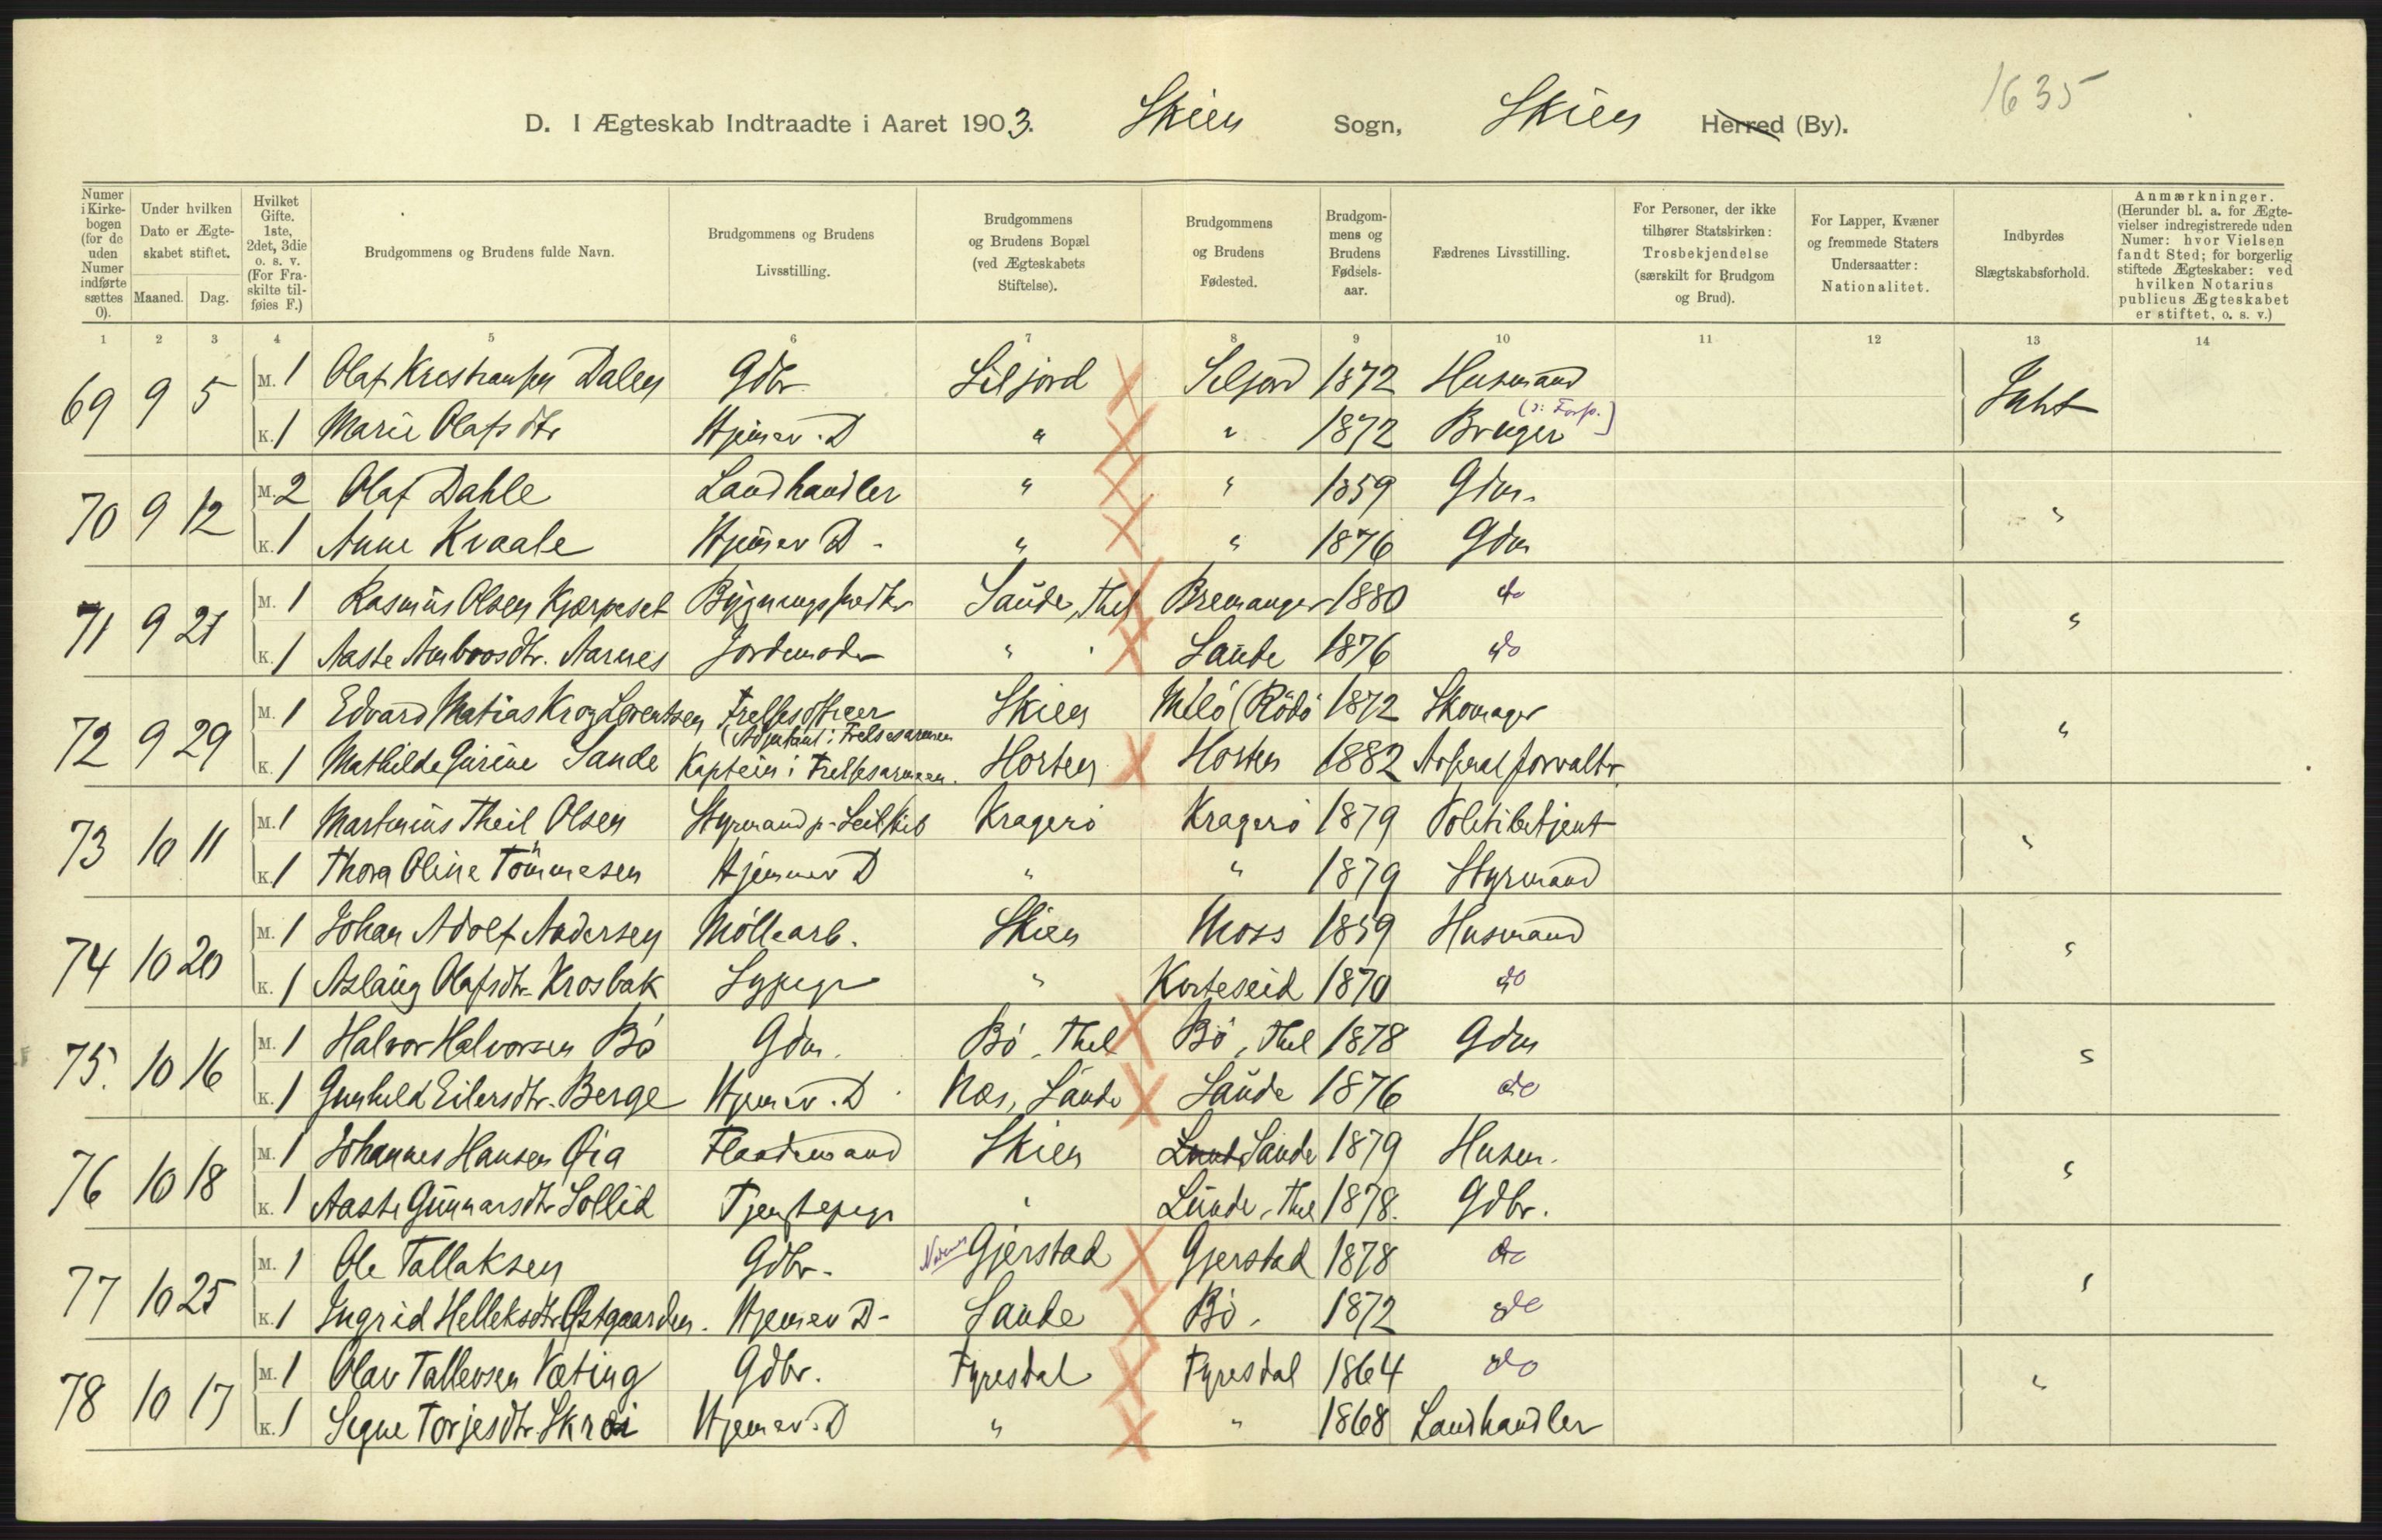 1635
D. I Ægteskab Indtraadte i Aaret 1903. Skien Sogn, Skien Herred (By).
Numer i Kirkebogen (for de uden Numer indførte sættes 0). Under hvilken Dato er Ægteskabet stiftet. Maaned. Dag. Hvilket Gifte. 1ste, 2det, 3die o. s. v. (For Fraskilte tilføies F.) Brudgommens og Brudens fulde Navn. Brudgommens og Brudens Livsstilling. Brudgommens og Brudens Bopæl (ved Ægteskabets Stiftelse). Brudgommens og Brudens Fødested. Brudgommens og Brudens Fødselsaar. Fædrenes Livsstilling. For Personer, der ikke tilhører Statskirken: Trosbekjendelse (særskilt for Brudgom og Brud). For Lapper, Kvæner og fremmede Staters Undersaatter: Nationalitet. Indbyrdes Slægtskabsforhold. Anmærkninger. (Herunder bl. a. for Ægtevielser indregistrerede uden Numer: hvor Vielsen fandt Sted; for borgerlig stiftede Ægteskaber: ved hvilken Notarius publicus Ægteskabet er stiftet, o. s. v.)
1 2 3 4 5 6 7 8 9 10 11 12 13 14
69 9 5 M. 1 Olaf Kristiansen Dalen Gdbr Siljord Seljord 1872 Husmand
K. 1 Marie Olafsdtr Hjemmev. D " " 1872 Bruger (ɔ: Forp.)
70 9 12 M. 2 Olaf Dahle Landhandler " " 1859 Gdm. "
K. 1 Anne Kvaale Hjemmev D - " " 1876 Gdm
71 9 21 M. 1 Rasmus Olsen Kjærpeset Saude, Thel Bremanger 1880 do "
K. 1 Aaste Ambrosdtr. Aarnes Jordemoder " Saude 1876 do
72 9 29 M. 1 Edvard Matias Krog Lorentsen Frelsesofficer Skien Melö (Rödö 1872 Skomager "
(Adjutant i Frelsesarmeen
K. 1 Mathilde Gurine Sande Kaptein i Frelsesarmeen. Horten Horten 1882 Arsenalforvalter
73 10 11 M. 1 Martinius Theil Olsen Styrmand p. Seilskib Kragerö Kragerö 1879 Politibetjent "
K. 1 Thora Oline Tömmesen Hjemmev D " " 1879 Styrmand
74 10 20 M. 1 Johan Adolf Andersen Möllearb. Skien Moss 1859 Husmand "
K. 1 Aslaug Olafsdtr. Krosbak Sypige " Kviteseid 1870 do
75. 10 16 M. 1 Halvor Halvorsen Bö Gdm. Bö, Thel Bö, Thel 1878 Gdm "
K. 1 Gunhild Eilersdtr. Berge Hjemmev. D Nes, Saude Saude 1876 do
76 10 18 M. 1 Johannes Hansen Øia Flaademand Skien Lunde Saude 1879 Husm. "
K. 1 Aaste Gunnarsdtr Sollid Tjenstepige " Lunde, Thel 1878. Gdbr.
77 10 25 M. 1 Ole Tallaksen Gdbr. Gjerstad Gjerstad 1878 do "
K. 1 Ingrid Helleksdtr. Østgaarden. Hjemmev D - Saude Bö. 1872 do
78 10 17 M. 1 Olav Tallevsen Væting Gdbr. Fyresdal Fyresdal 1864 do "
K. 1 Signe Torjesdtr. Skrei Hjemmev. D " " 1868 Landhandler